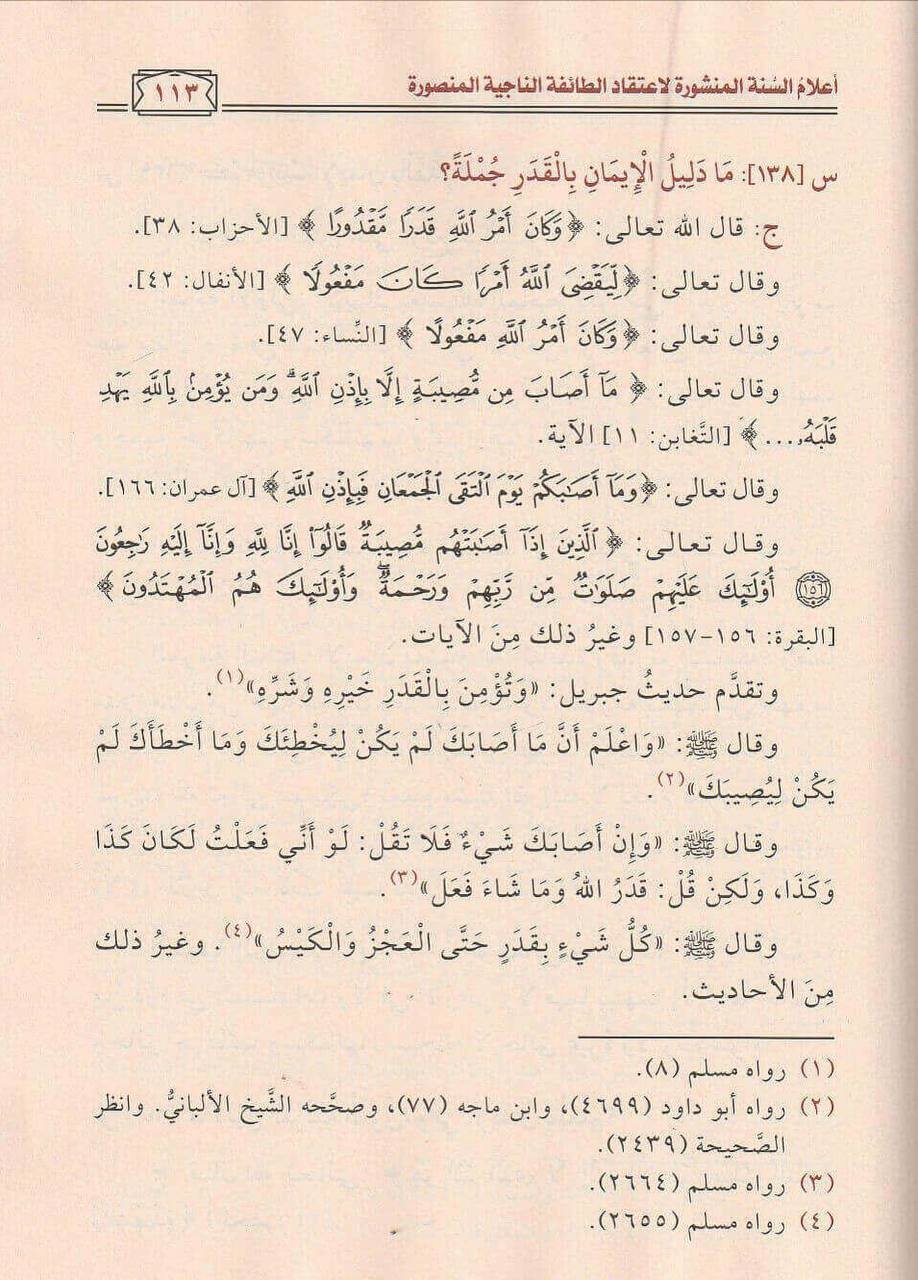 أعلام السُنة المنشورة لاعتقاد الطائفة الناجية المنصورة
١١٣
س [١٣٨]: مَا دَلِيلُ الْإِيمَانِ بِالْقَدَرِ جُمْلَةً؟
ج: قال الله تعالى: ﴿وَكَانَ أَمْرُ ٱللَّهِ قَدَرًا مَّقْدُورًا﴾ [الأحزاب: ٣٨].
وقال تعالى: ﴿لِّيَقْضِىَ ٱللَّهُ أَمْرًا كَانَ مَفْعُولًا﴾ [الأنفال: ٤٢].
وقال تعالى: ﴿وَكَانَ أَمْرُ ٱللَّهِ مَفْعُولًا﴾ [النِّساء: ٤٧].
وقال تعالى: ﴿مَآ أَصَابَ مِن مُّصِيبَةٍ إِلَّا بِإِذْنِ ٱللَّهِ ۗ وَمَن يُؤْمِنۢ بِٱللَّهِ يَهْدِ
قَلْبَهُۥ...﴾ [التَّغابن: ١١] الآية.
وقال تعالى: ﴿وَمَآ أَصَٰبَكُمْ يَوْمَ ٱلْتَقَى ٱلْجَمْعَانِ فَبِإِذْنِ ٱللَّهِ﴾ [آل عمران: ١٦٦].
وقال تعالى: ﴿ٱلَّذِينَ إِذَآ أَصَٰبَتْهُم مُّصِيبَةٌ قَالُوٓا۟ إِنَّا لِلَّهِ وَإِنَّآ إِلَيْهِ رَٰجِعُونَ
١٥٦ أُو۟لَٰٓئِكَ عَلَيْهِمْ صَلَوَٰتٌ مِّن رَّبِّهِمْ وَرَحْمَةٌ ۖ وَأُو۟لَٰٓئِكَ هُمُ ٱلْمُهْتَدُونَ﴾
[البقرة: ١٥٦-١٥٧] وغيرُ ذلك مِنَ الآيات.
وتقدَّم حديثُ جبريل: «وَتُؤْمِنَ بِالْقَدَرِ خَيْرِهِ وَشَرِّهِ»(١).
وقال ﷺ: «وَاعْلَمْ أَنَّ مَا أَصَابَكَ لَمْ يَكُنْ لِيُخْطِئَكَ وَمَا أَخْطَأَكَ لَمْ
يَكُنْ لِيُصِيبَكَ»(٢).
وقال ﷺ: «وَإِنْ أَصَابَكَ شَيْءٌ فَلَا تَقُلْ: لَوْ أَنِّي فَعَلْتُ لَكَانَ كَذَا
وَكَذَا، وَلَكِنْ قُلْ: قَدَرُ اللهُ وَمَا شَاءَ فَعَلَ»(٣).
وقال ﷺ: «كُلُّ شَيْءٍ بِقَدَرٍ حَتَّى الْعَجْزُ وَالْكَيْسُ»(٤). وغيرُ ذلك
مِنَ الأحاديث.
(١) رواه مسلم (٨).
(٢) رواه أبو داود (٤٦٩٩)، وابن ماجه (٧٧)، وصحَّحه الشَّيخ الألبانيُّ. وانظر
الصَّحيحة (٢٤٣٩).
(٣) رواه مسلم (٢٦٦٤).
(٤) رواه مسلم (٢٦٥٥).